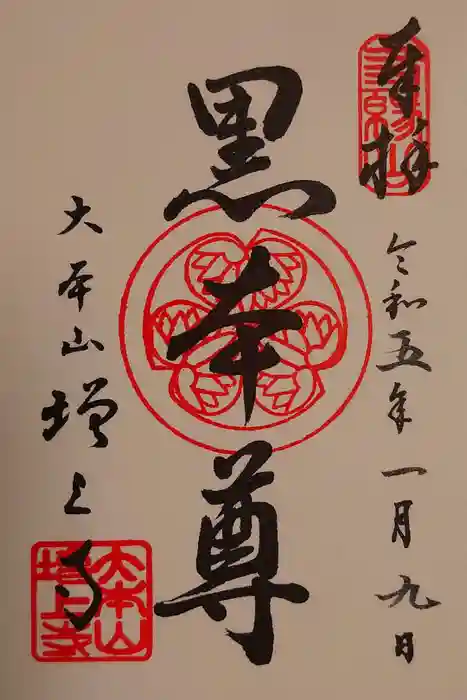 奉拝
令和五年一月九日
黒本尊
大本山増上寺
大本山
増上寺